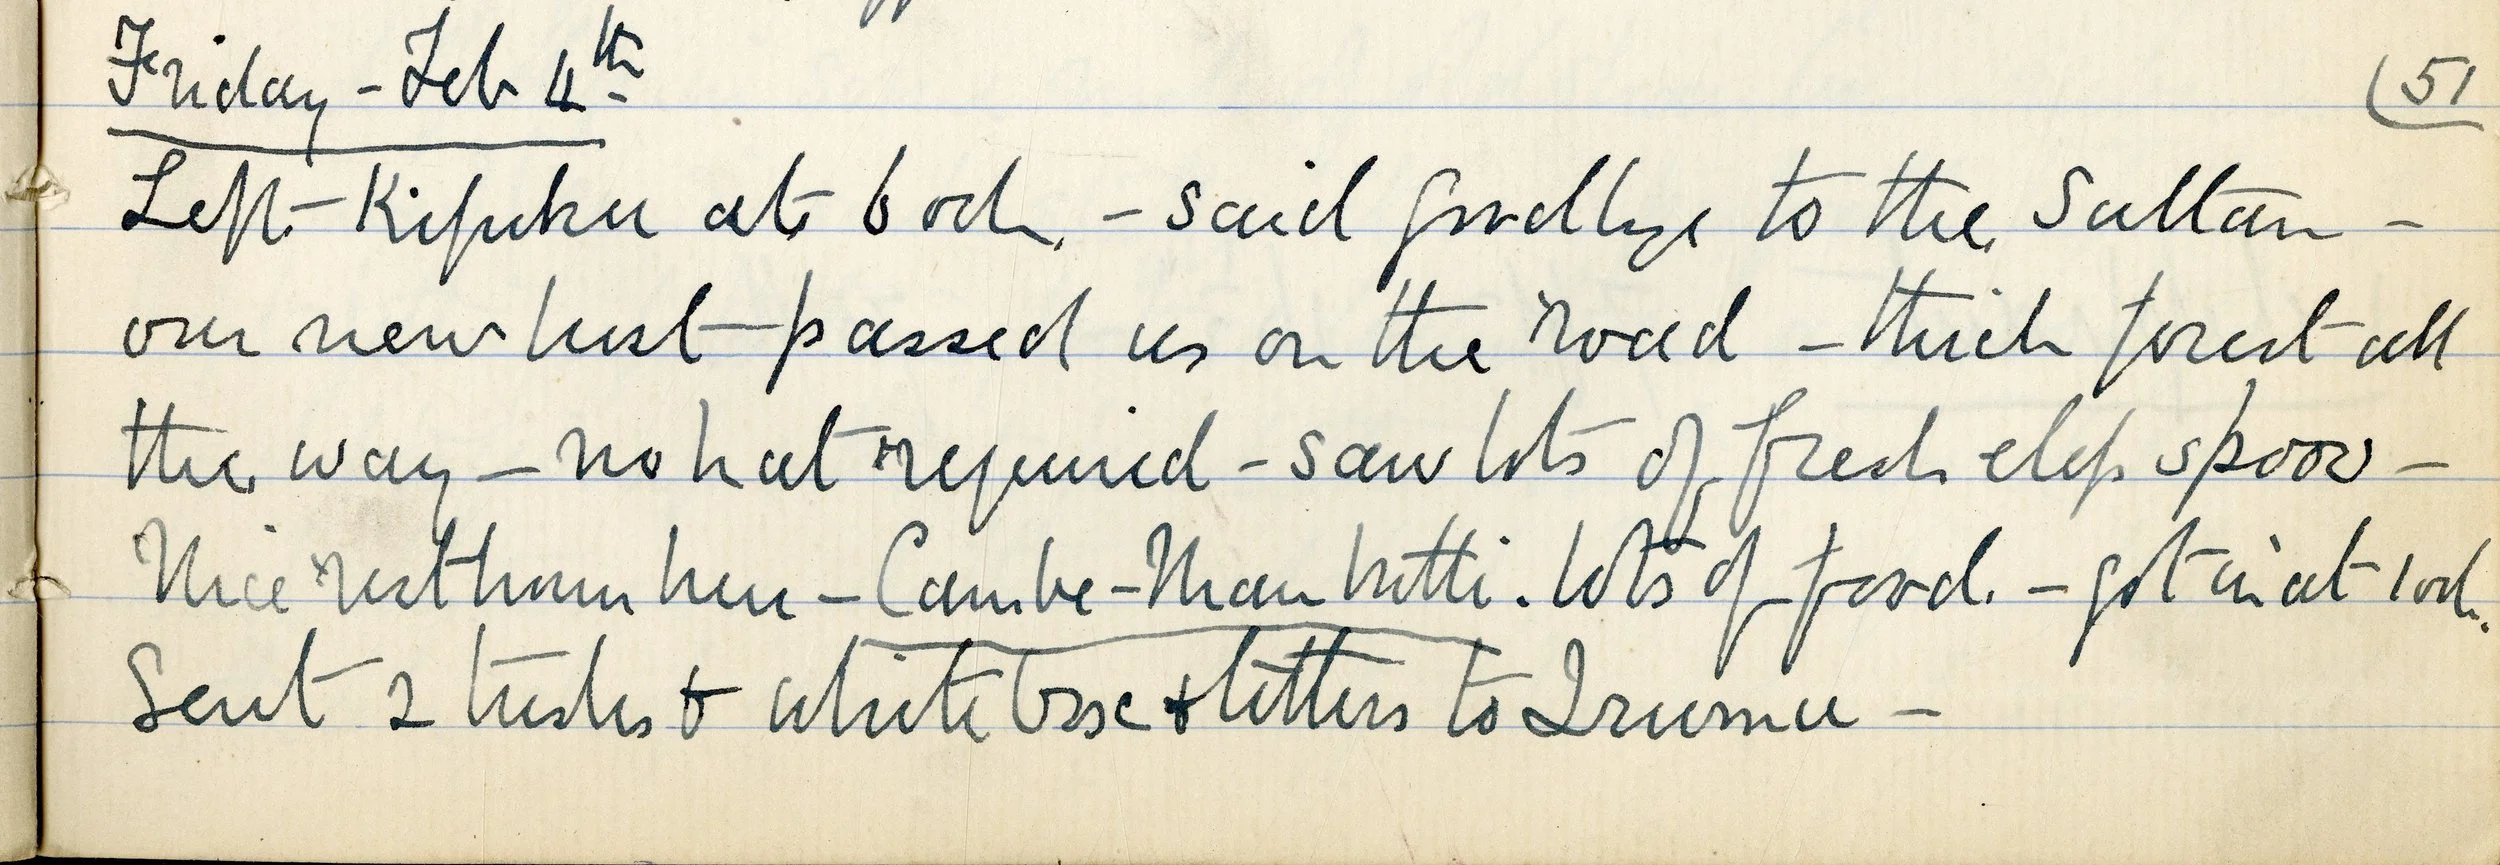 Friday - Feb 4th
(51
Left - Kifuku at 6 ock. - said goodbye to the Sultan -
our new host - passed us on the road - thick forest all
the way - no hat required - saw lots of fresh elep spoor -
Nice resthouse here - Cambe - Mambutti. lots of food. - got in at 1 ock.
Sent 2 tusks & white & letters to Irumu -